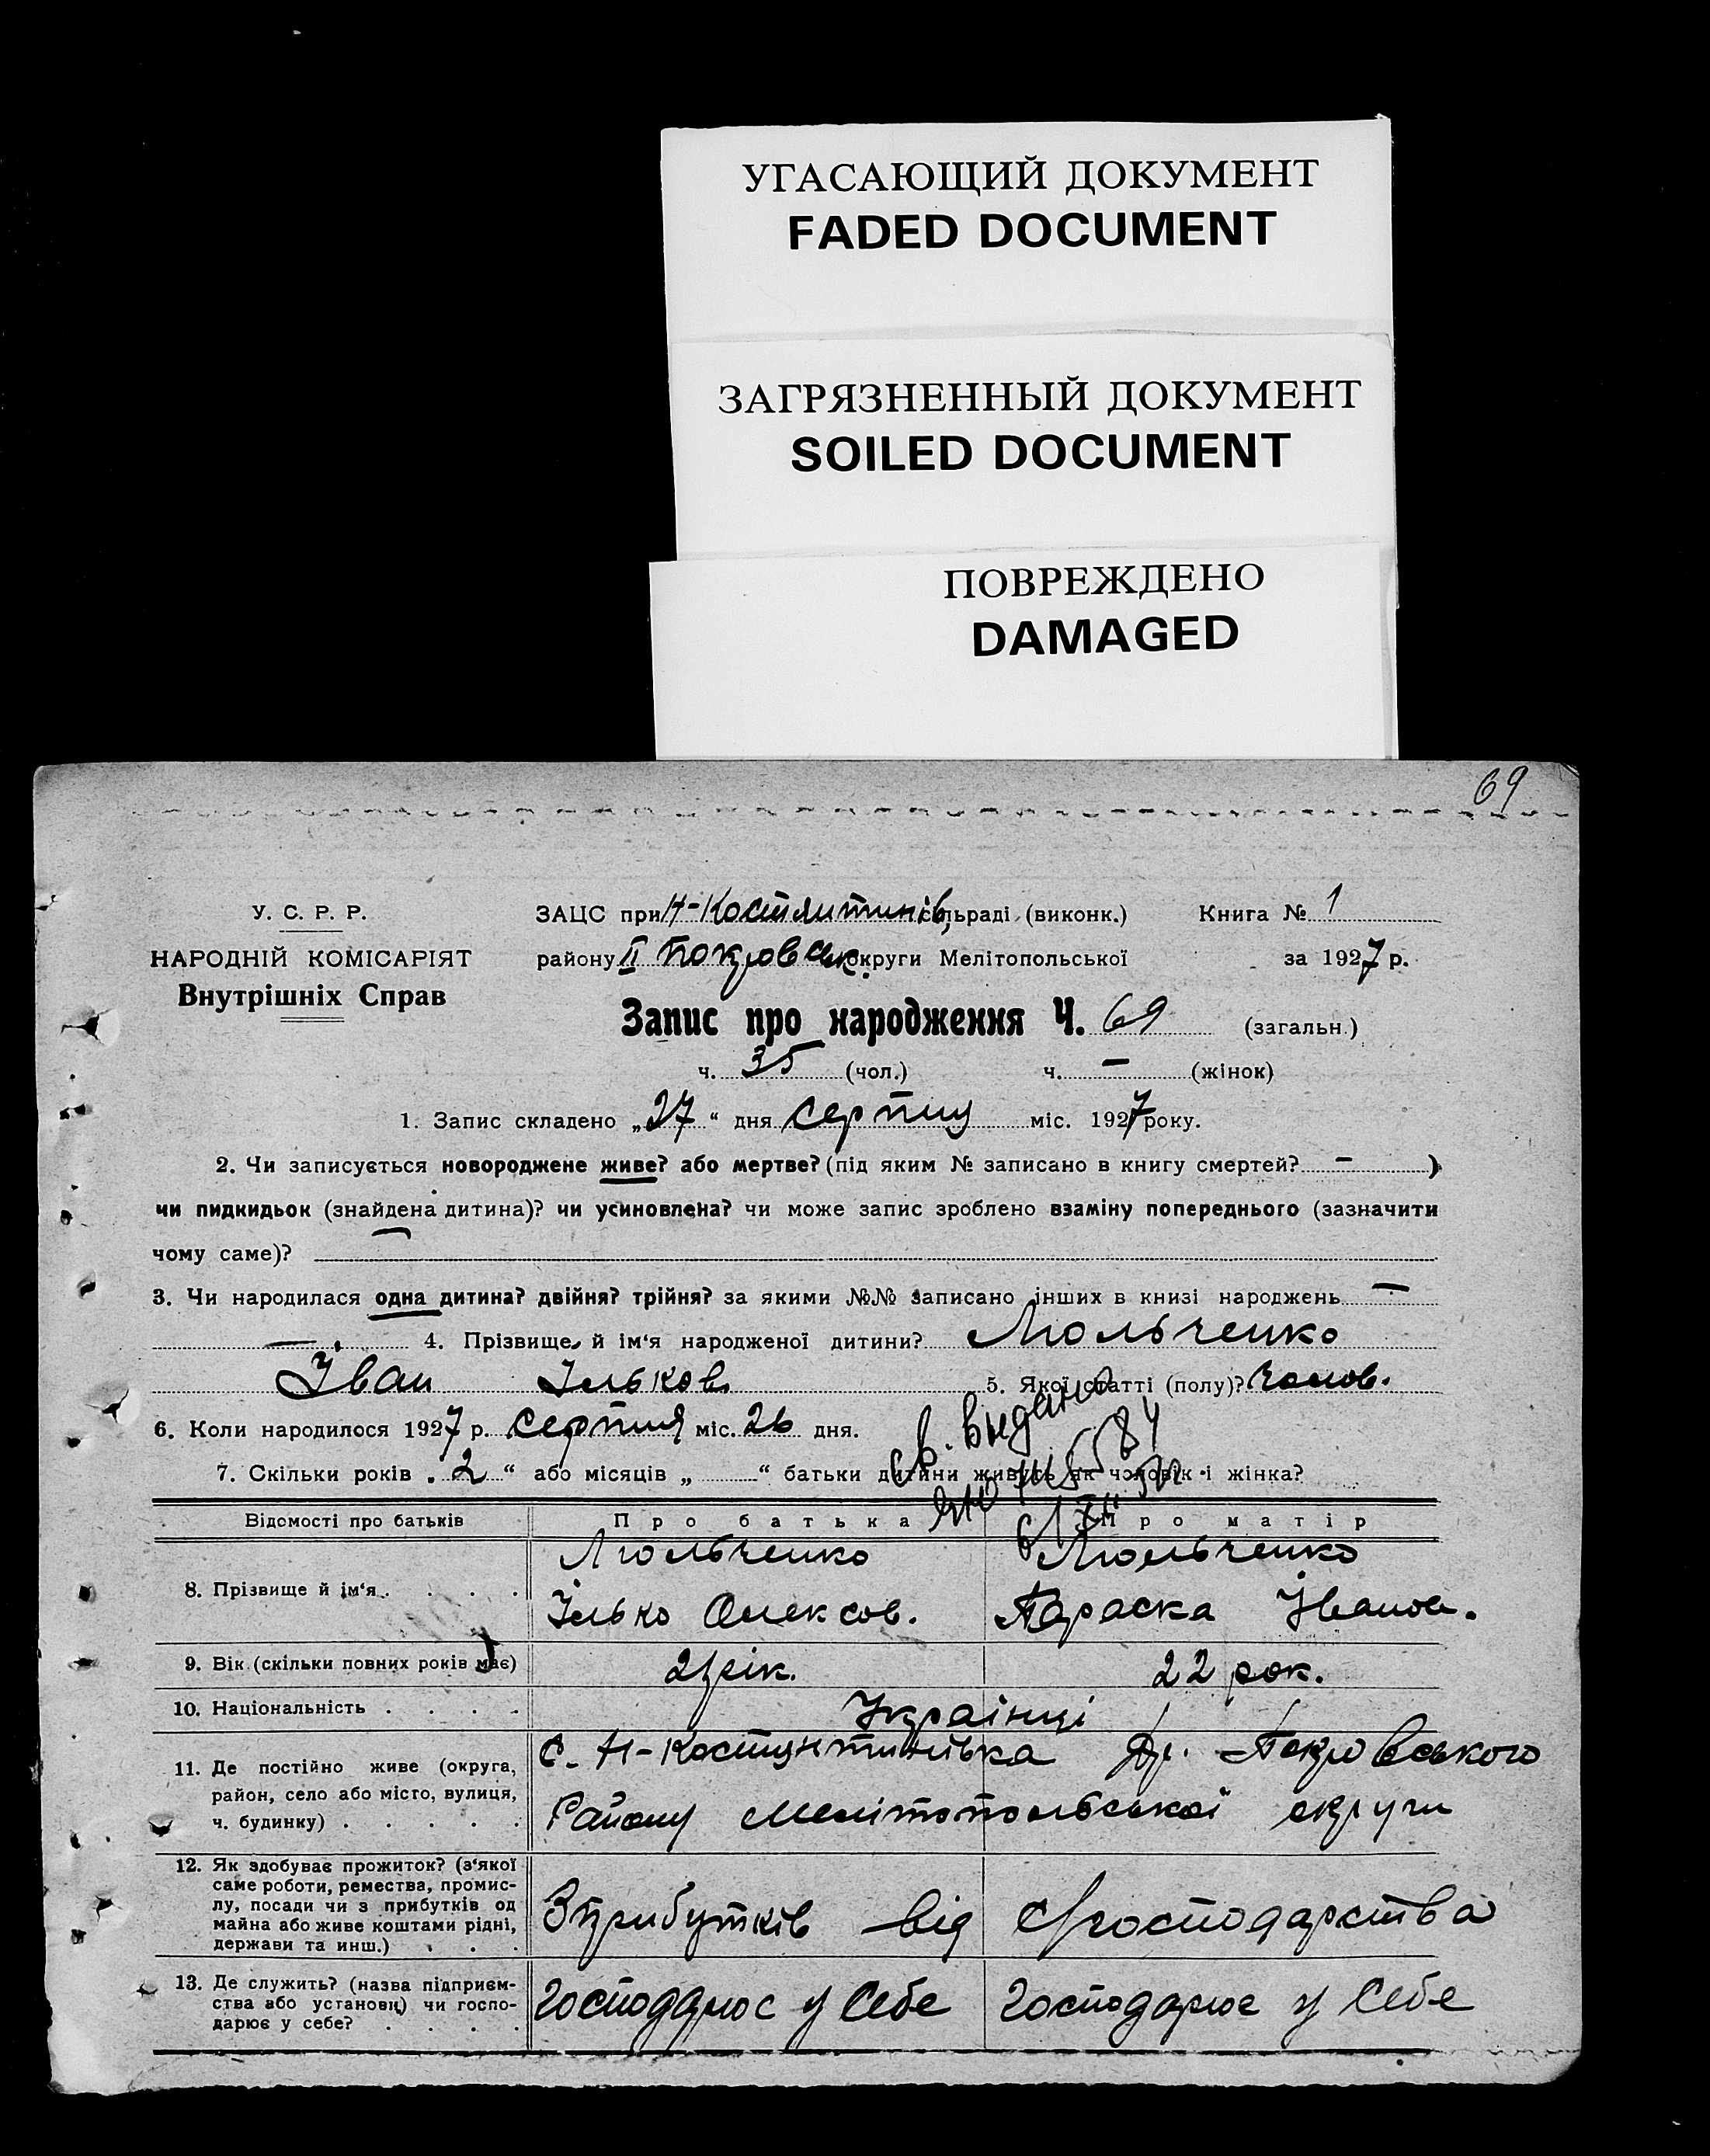 УГАСАЮЩИЙ ДОКУМЕНТ
FADED DOCUMENT
ЗАГРЯЗНЕННЫЙ ДОКУМЕНТ
SOILED DOCUMENT
ПОВРЕЖДЕНО
DAMAGED
69
У. С. Р. Р.
НАРОДНІЙ КОМІСАРІЯТ
Внутрішніх Справ
ЗАЦС при Н-Костянтинів, сільраді (виконк.)
району ІІ Покровськ. округи Мелітопольської
Книга № 1
за 1927 р.
Запис про народження Ч. 69 (загальн.)
ч. 35 (чол.) ч. — (жінок)
1. Запис складено „27“ дня серпня міс. 1927 року.
2. Чи записується новороджене живе? або мертве? (під яким № записано в книгу смертей? — )
чи пидкидьок (знайдена дитина)? чи усиновлена? чи може запис зроблено взаміну попереднього (зазначити
чому саме)?
3. Чи народилася одна дитина? двійня? трійня? за якими №№ записано інших в книзі народжень —
— 4. Прізвище й ім'я народженої дитини? Люльченко
Іван Ільков. 5. Якої статті (полу)? Чолов.
6. Коли народилося 1927 р. серпня міс. 26 дня.
7. Скільки років „2“ або місяців „ “ батьки дитини живуть як чоловік і жінка?
св. выдано
Відомості про батьків Про батька Про матір
8. Прізвище й ім'я . . . .
Люльченко
Ілько Олексов.
Люльченко
Параска Іванов.
9. Вік (скільки повних років має) 21 рік. 22 рок.
10. Національність . . . . Українці
11. Де постійно живе (округа,
район, село або місто, вулиця,
ч. будинку) . . . . .
С. Н-Костянтинівка Др. Покровського
Району Мелітопольської округи
12. Як здобуває прожиток? (з'якої
саме роботи, ремества, промис-
лу, посади чи з прибутків од
майна або живе коштами рідні,
держави та инш.) . . .
З прибутків від господарства
13. Де служить? (назва підприєм-
ства або установи) чи госпо-
дарює у себе? . . . .
Господарює у Себе
Господарює у Себе